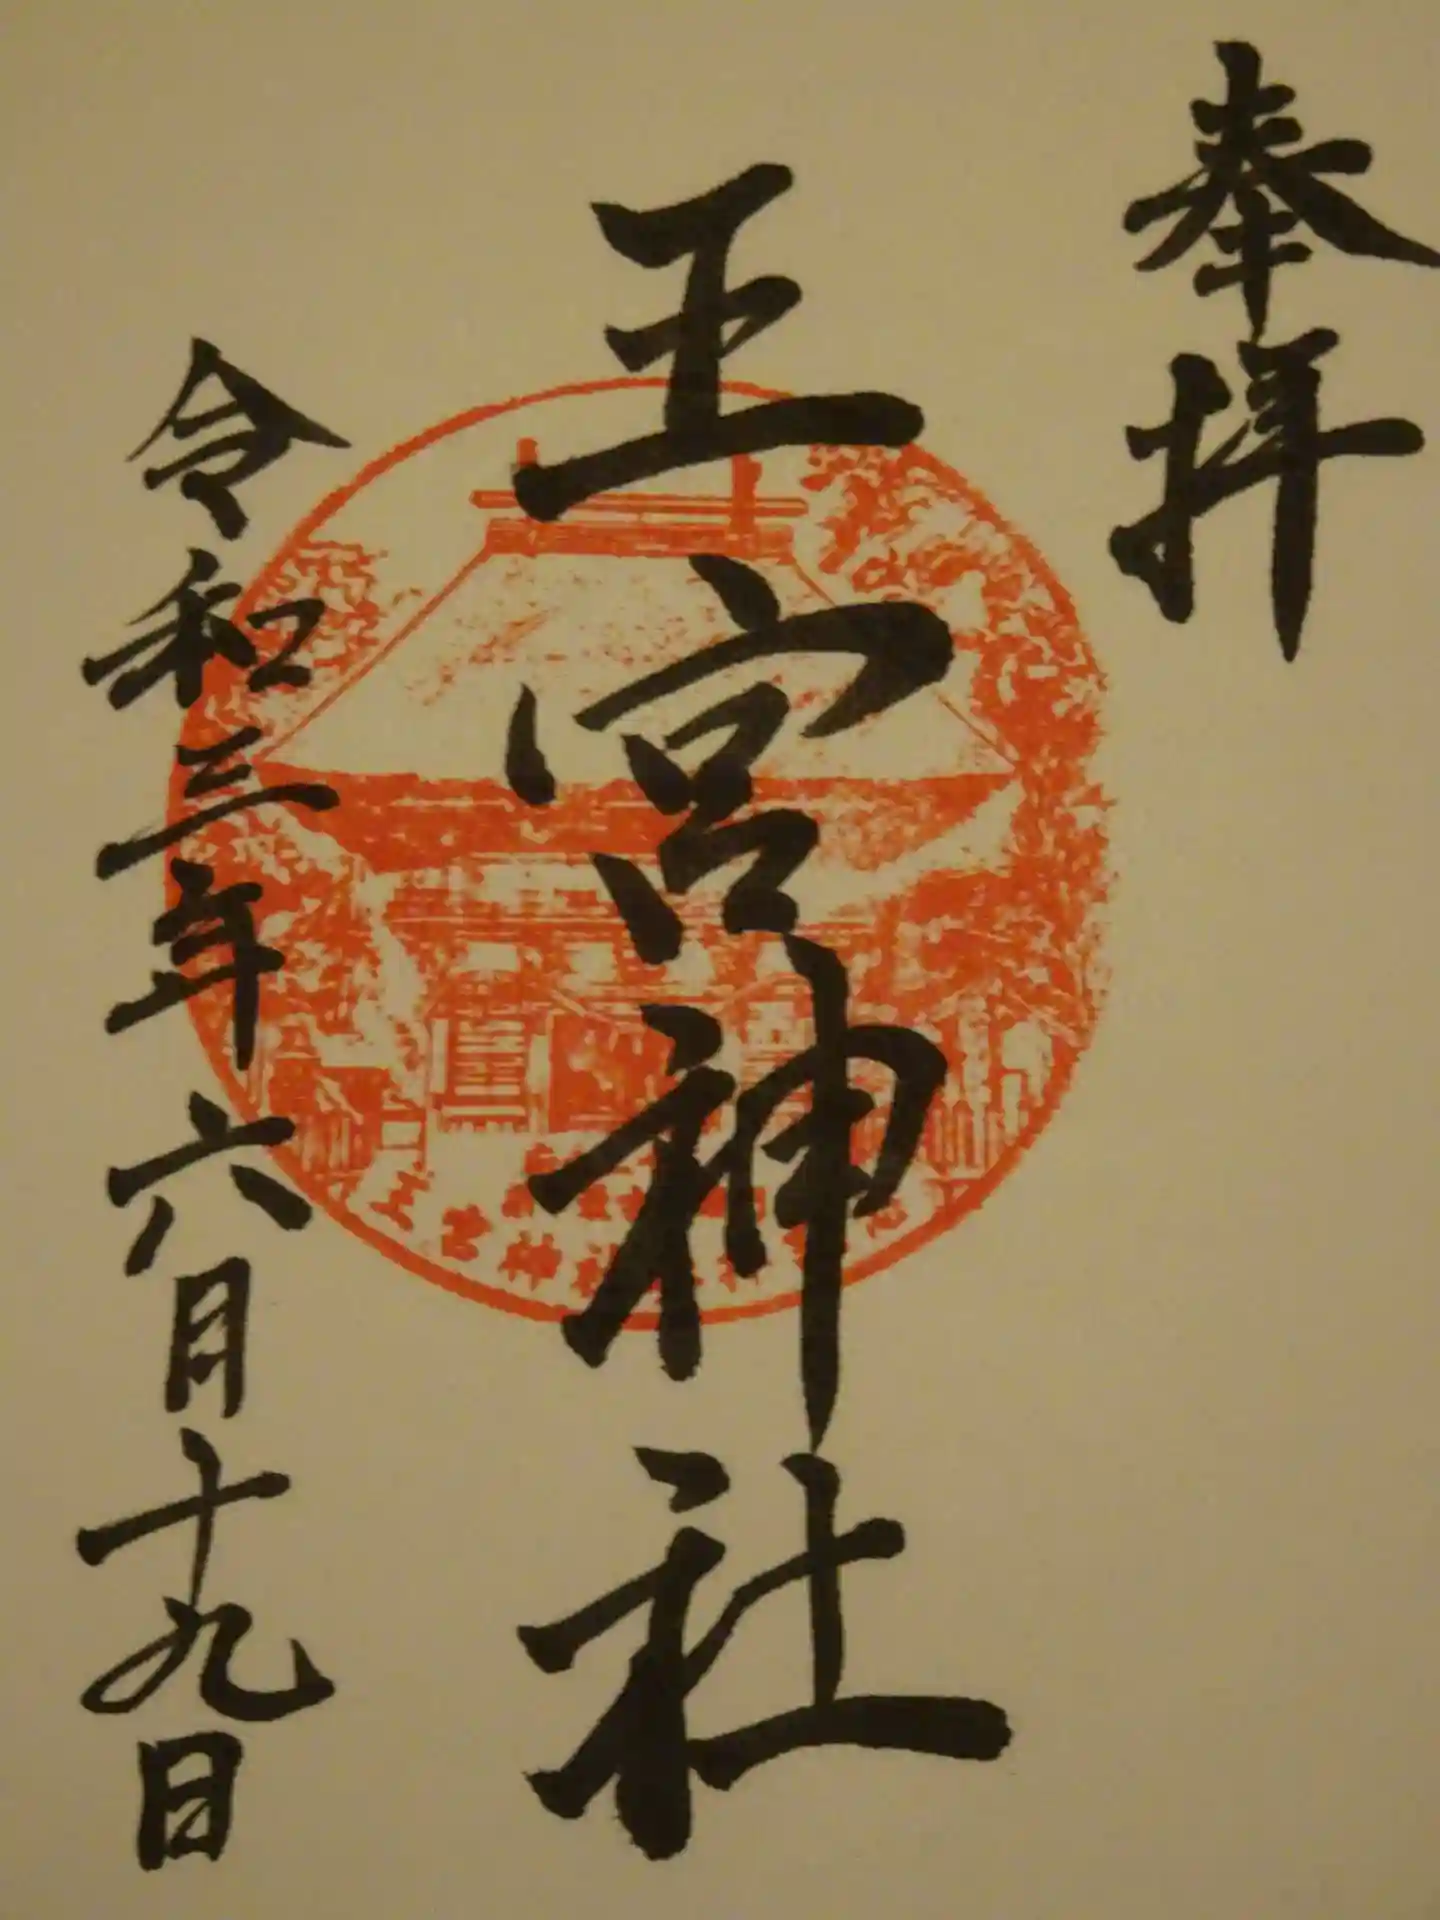 奉拝
王宮神社
令和三年六月十九日
王宮神社